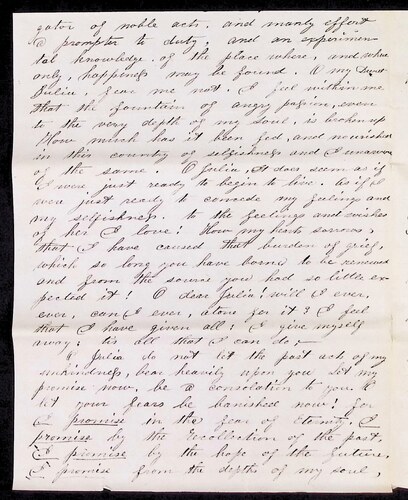 gator of noble acts. and manly effort
a prompter to duty, and an experimen
tal knowledge. of the place where, and where
only, happiness may be found. O my Sweet
Julia, fear me not. I feel within me
that the fountain of angry passion, even
to the very depth of my soul, is broken up
How much has it been fed, and nourished
in this country of selfishness and I unaware
of the same. O Julia, It does seem as if
I were just ready to begin to live. As if I
were just ready to concede my feelings and
my selfishness. to the feelings and wishes
of her I love! How my heart sorrows,
that I have caused that burden of grief,
which so long you have borne to be renewed
and from the source you had so little ex
pected it! O dear Julia! will I ever,
ever, can I ever, atone for it? I feel
that I have given all: I give myself
away: tis all that I can do.
Julia do not let the past acts of my
unkindness, bear heavily upon you Let my
promise now, be a consolation to you. O
let your fears be banished now! for
I promise in the fear of Eternity, I
promise by the recollection of the past,
I promise by the hope of the future,
I promise from the depths of my soul,